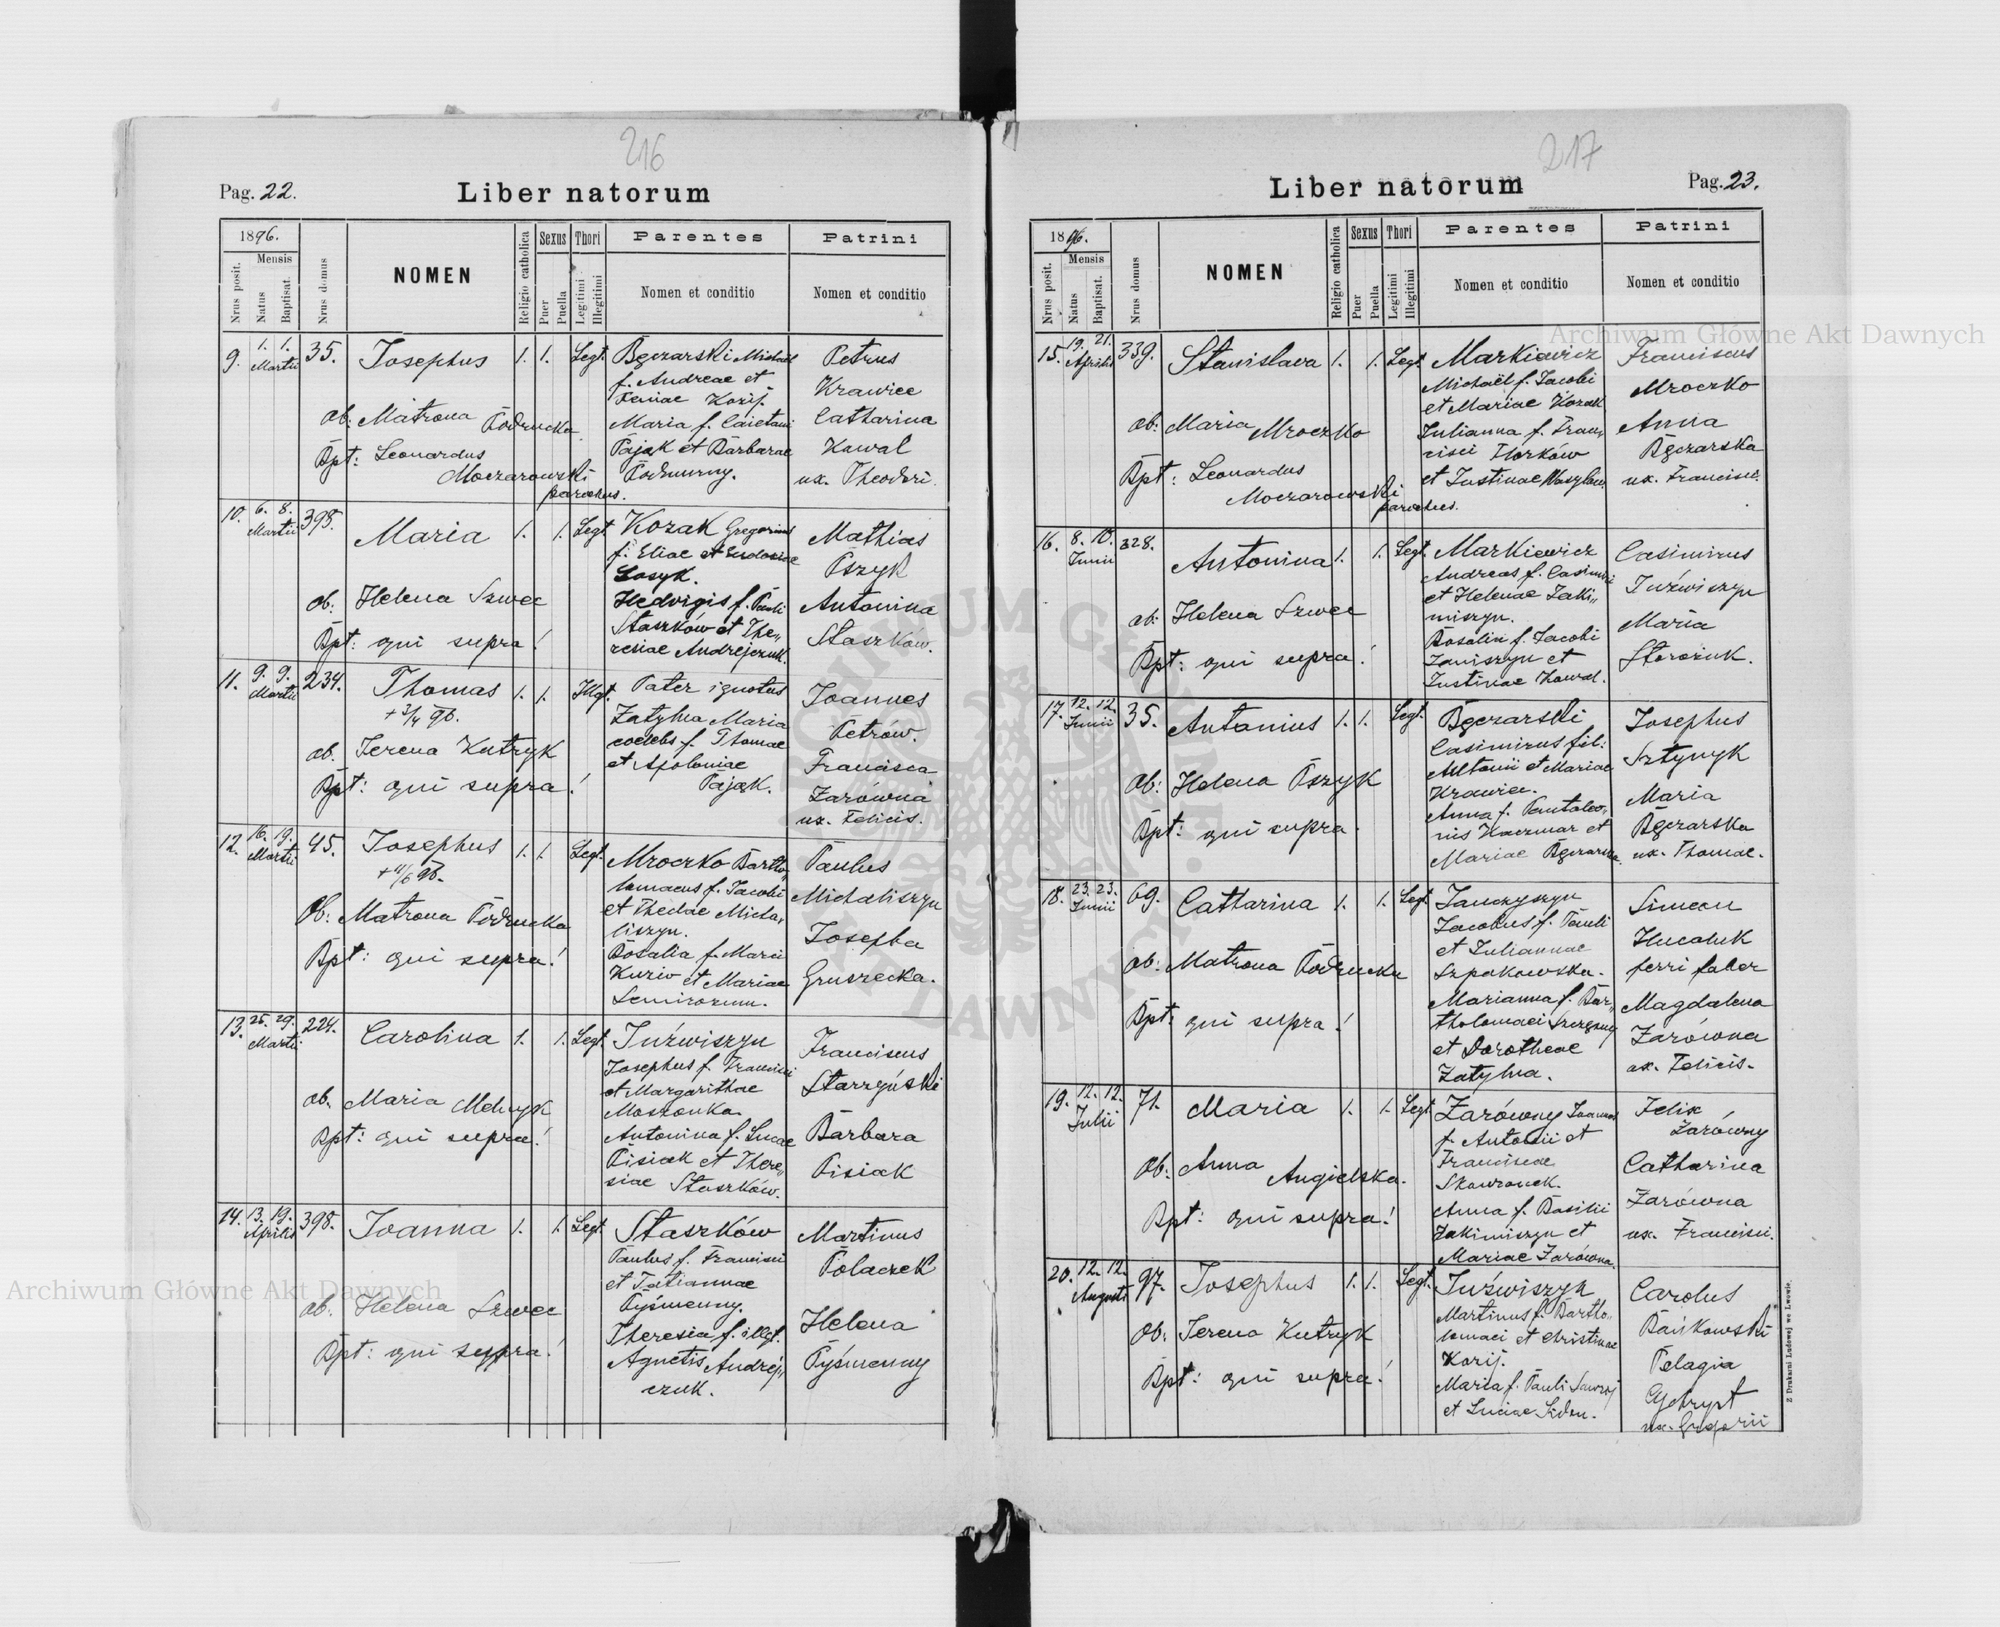 216
Pag. 22.
Liber natorum
1896.
Mensis
Nrus posit.
Natus
Baptisat.
Nrus domus
NOMEN
Religio catholica
Sexus
Puer
Puella
Thori
Legitimi
Illegitimi
Parentes
Nomen et conditio
Patrini
Nomen et conditio
9. 1. 1. Martii 35. Josephus 1. 1. Legt.
ob: Matrona Podrucka
Bpt: Leonardus
Moczarowski
parochus.
Bęczarski Michael
f. Andreae et
Xeniae Korij.
Maria f. Caietani
Pająk et Barbarae
Podmurny.
Petrus
Krawiec
Catharina
Kowal
ux. Theodori.
10. 6. 8. Martii 395. Maria 1. 1. Legt.
ob: Helena Szwec
Bpt: qui supra!
Kozak Gregorius
f. Eliae et Eudosiae
Łosyk.
Hedvigis f. Pauli
Staszków et The„
resiae Andrejczuk.
Mathias
Oszyk
Antonina
Staszków.
11. 9. 9. Martii 234. Thomas 1. 1. Illgt.
+ 3/4 96.
ob. Terena Kutryk
Bpt: qui supra!
Pater ignotus
Zatylna Maria
coelebs f. Thomae
et Apoloniae
Pająk.
Joannes
Petrów.
Francisca
Zarówna
ux. Felicis.
12. 16. 19. Martii 45. Josephus 1. 1. Legt.
+ 11/6 96.
Ob: Matrona Podrucka
Bpt: qui supra!
Mroczko Bartho„
lomaeus f. Jacobi
et Theclae Micha„
liszyn.
Rosalia f. Marci
Kuziv et Mariae
Semirozum.
Paulus
Michaliszyn
Josepha
Gruszecka.
13. 25. 29. Martii 224. Carolina 1. 1. Legt.
ob. Maria Melnyk
Bpt: qui supra!
Juźwiszyn
Josephus f. Francisci
et Margarithae
Moszonka.
Antonina f. Lucae
Pisiak et There„
siae Staszków.
Franciscus
Starzyński
Barbara
Pisiak
14. 13. 19. Aprilis 398. Joanna 1. 1. Legt.
ob. Helena Szwec
Bpt: qui supra!
Staszków
Paulus f. Francisci
et Tatiannae
Pyśmenny.
Theresia f. illgt.
Agnetis Andrej„
czuk.
Martinus
Polaczek
Helena
Pyśmenny
217
Liber natorum
Pag. 23.
1896.
Mensis
Nrus posit.
Natus
Baptisat.
Nrus domus
NOMEN
Religio catholica
Sexus
Puer
Puella
Thori
Legitimi
Illegitimi
Parentes
Nomen et conditio
Patrini
Nomen et conditio
15. 19. 21. Aprilis 339. Stanislava 1. 1. Legt.
ob: Maria Mroczko
Bpt: Leonardus
Moczarowski
parochus.
Markiewicz
Michaël f. Jacobi
et Mariae Kozak
Julianna f. Fran„
cisci Florków
et Justinae Wasylów.
Franciscus
Mroczko
Anna
Bęczarska
ux. Francisci.
16. 8. 10. Junii 328. Antonina 1. 1. Legt.
ob: Helena Szwec
Bpt: qui supra!
Markiewicz
Andreas f. Casimiri
et Helenae Jaki„
miszyn.
Rosalia f. Jacobi
Zaniszyn et
Justinae Kowal.
Casimirus
Juźwiszyn
Maria
Storożuk.
17. 12. 12. Junii 35. Antonius 1. 1. Legt.
ob: Helena Oszyk
Bpt: qui supra.
Bęczarski
Casimirus fil:
Antonii et Mariae
Krawiec.
Anna f. Pantaleo„
nis Kaczmar et
Mariae Bęczarska.
Josephus
Sztynyk
Maria
Bęczarska
ux. Thomae.
18. 23. 23. Junii 69. Catharina 1. 1. Legt.
ob: Matrona Podrucka
Bpt: qui supra!
Janczyszyn
Jacobus f. Pauli
et Juliannae
Szpakowska.
Marianna f. Bar„
tholomaei
et Dorotheae
Zatylna.
Simeon
Hucaluk
ferri faber
Magdalena
Zarówna
ux. Felicis.
19. 12. 12. Julii 71. Maria 1. 1. Legt.
Ob: Anna Angielska.
Bpt: qui supra!
Zarówny Joannes
f. Antonii et
Franciscae
Skowronek.
Anna f. Basilii
Jakimiszyn et
Mariae Zarówna.
Felix
Zarówny
Catharina
Zarówna
ux. Francisci.
20. 12. 12. Augusti 97. Josephus 1. 1. Legt.
Ob: Terena Kutryk
Bpt: qui supra!
Juźwiszyn
Martinus f. Bartho„
lomaei et Christinae
Korij.
Maria f. Pauli
et Luciae
Carolus
Bańkowski
Pelagia
ux. Gregorii
Z Drukarni Ludowej we Lwowie.
Archiwum Główne Akt Dawnych
Archiwum Główne Akt Dawnych
ARCHIWUM GŁÓWNE AKT DAWNYCH